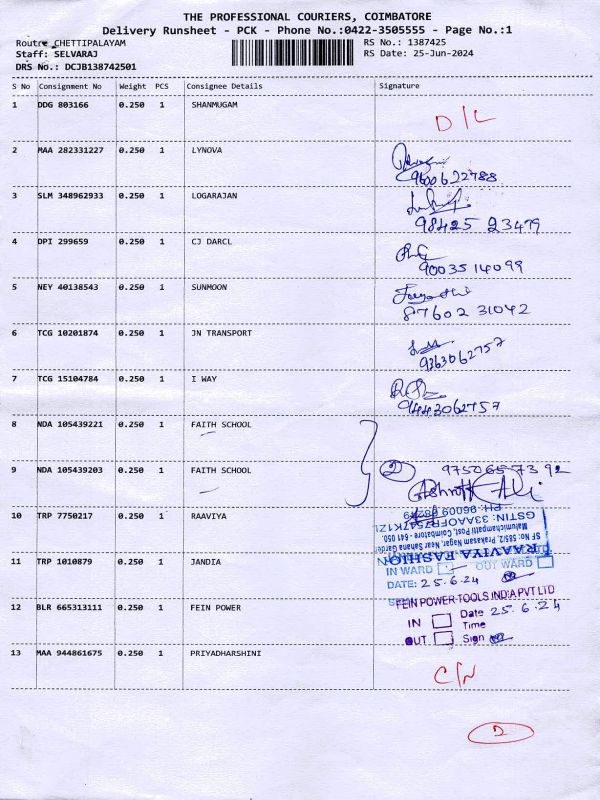 THE PROFESSIONAL COURIERS, COIMBATORE
Delivery Runsheet - PCK - Phone No.:0422-3505555 - Page No.:1
Route: CHETTIPALAYAM
Staff: SELVARAJ
DRS No.: DCJB138742501
RS No.: 1387425
RS Date: 25-Jun-2024
S No Consignment No Weight PCS Consignee Details Signature
1 DDG 803166 0.250 1 SHANMUGAM D/L
2 MAA 282331227 0.250 1 LYNOVA
9600622788
3 SLM 348962933 0.250 1 LOGARAJAN
98425 23479
4 DPI 299659 0.250 1 CJ DARCL
9003514099
5 NEY 40138543 0.250 1 SUNMOON
87602 31042
6 TCG 10201874 0.250 1 JN TRANSPORT
9363062757
7 TCG 15104784 0.250 1 I WAY
9443062757
8 NDA 105439221 0.250 1 FAITH SCHOOL
9 NDA 105439203 0.250 1 FAITH SCHOOL
2 9750657392
Ashroff Ali
10 TRP 7750217 0.250 1 RAAVIYA
RAAVIYA FASHION
SF No: 585/2, Prakasam Nagar, Near Sahana Garden
Malumichampatti Post, Coimbatore - 641 050.
11 TRP 1010879 0.250 1 JANDIA
IN WARD OUT WARD
DATE: 25.6.24
12 BLR 665313111 0.250 1 FEIN POWER
FEIN POWER TOOLS INDIA PVT LTD
IN Date 25.6.24
Time
OUT Sign
13 MAA 944861675 0.250 1 PRIYADHARSHINI C/N
2